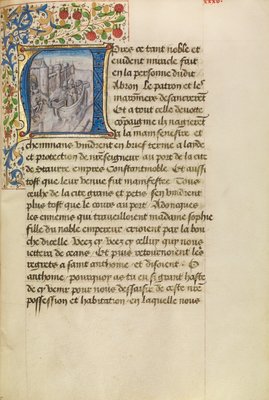 xxxv.
Apres ce tant noble et
euident miracle fait
en la personne dudit
Abron. Le patron et les
maronniers desancrerent
Et a tout celle deuotte
compaignie ilz nagierent
A la main senestre et
cheminans vindrent en brief terme a lande
et protection de nreseigneur au port de la cite
de Stautre empres Constantinoble. Et aussi
tost que leur venue fut manifestee. Tous
ceulx de la cite grans et petis sen vindrent
plus tost que le cours au port. Adonques
les ennemis qui trauelloient madame sophie
fille du noble empereur crioient par la bou
che dicelle. Veez cy veez cy cellui qui nous
iettera de ceans. Et puis retournoient les
regrets a saint anthoine. et disoient. O
anthoine pourquoy as tu eu si grant haste
de cy venir pour nous dessaisir de ceste nre
possession et habitation. en laquelle nous